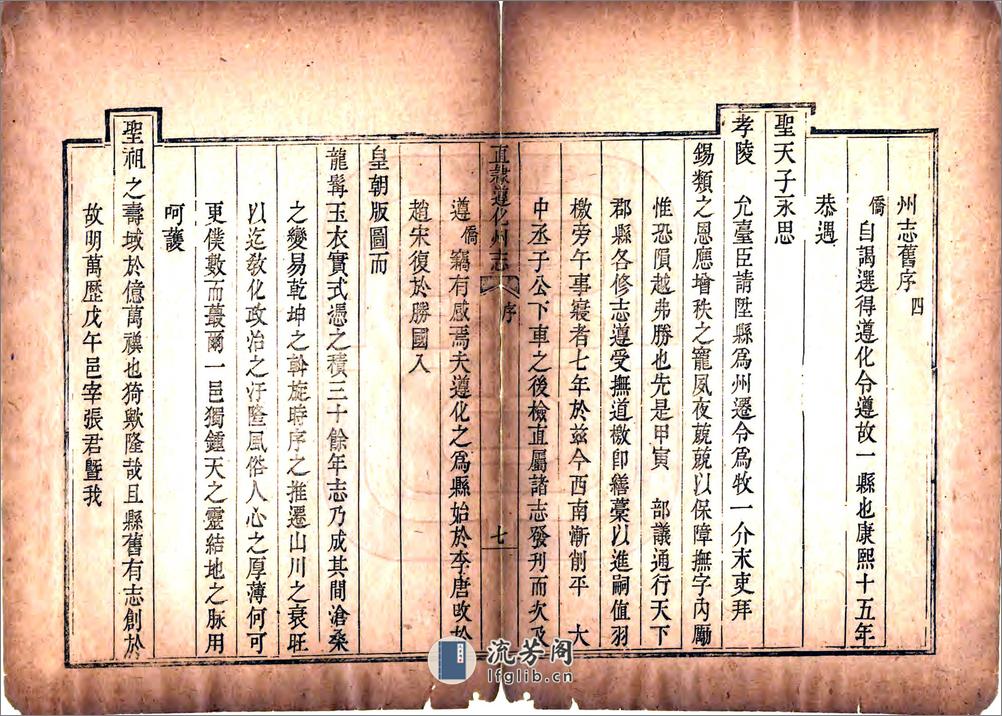 州志舊序四
僑自謁選得遵化令遵故一縣也康熙十五年
恭遇
聖天子永思
孝陵 允臺臣請陞縣為州遷令為牧一介末吏拜
錫類之恩應增秩之寵夙夜兢兢以保障撫字內勵
惟恐隕越弗勝也先是甲寅 部議通行天下
郡縣各修志遵受撫道檄卽繕藁以進嗣值羽
檄旁午事寢者七年於兹今西南漸削平 大
中丞于公下車之後檢直屬諸志發刊而次及
直隸遵化州志 序 七
遵僑竊有感焉夫遵化之為縣始於李唐改於
趙宋復於勝國入
皇朝版圖而
龍髯玉衣實式憑之積三十餘年志乃成其間滄桑
之變易乾坤之斡旋時序之推遷山川之衰旺
以迄敎化政治之汙隆風俗人心之厚薄何可
更僕數而蕞爾一邑獨鍾天之靈結地之脉用
呵護
聖祖之壽域於億萬禩也猗歟隆哉且縣舊有志創於
故明萬歷戊午邑宰張君暨我
流芳阁
lfglib.cn